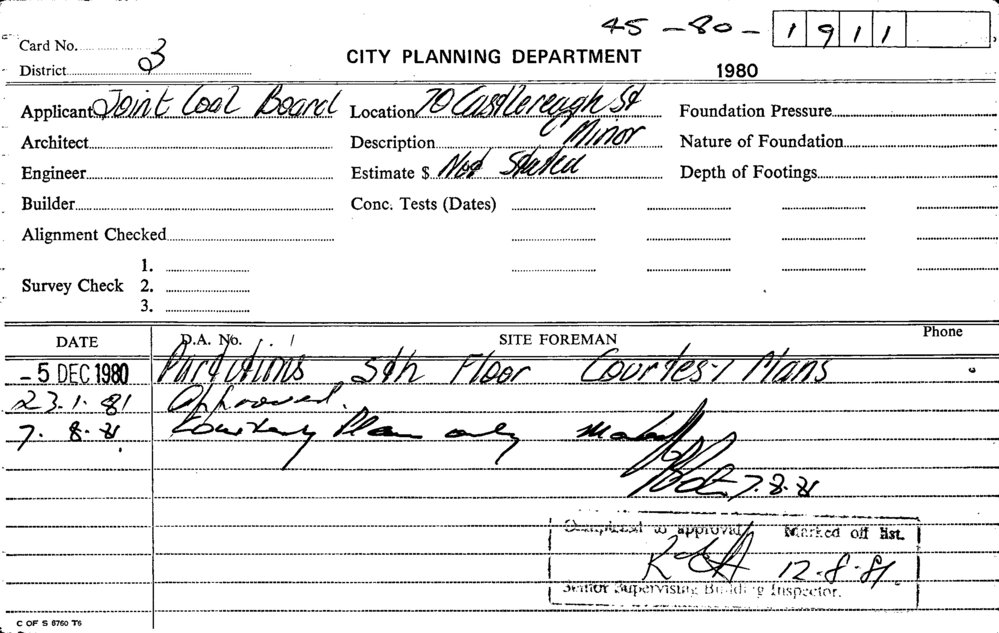 45 - 80 - 1911
Card No.
District 3
CITY PLANNING DEPARTMENT
1980
Applicant Joint Coal Board Location 70 Castlereagh St Foundation Pressure
Architect Description Minor Nature of Foundation
Engineer Estimate $ Not Stated Depth of Footings
Builder Conc. Tests (Dates)
Alignment Checked
1.
Survey Check 2.
3.
DATE D.A. No. SITE FOREMAN Phone
-5 DEC 1980 Partitions 5th Floor Courtesy Plans
23.1.81 Approved.
7.8.81 Courtesy Plan only
7.8.81
Completed to approval Marked off list.
12.8.81.
Senior Supervising Building Inspector.
C OF S 8760 T6